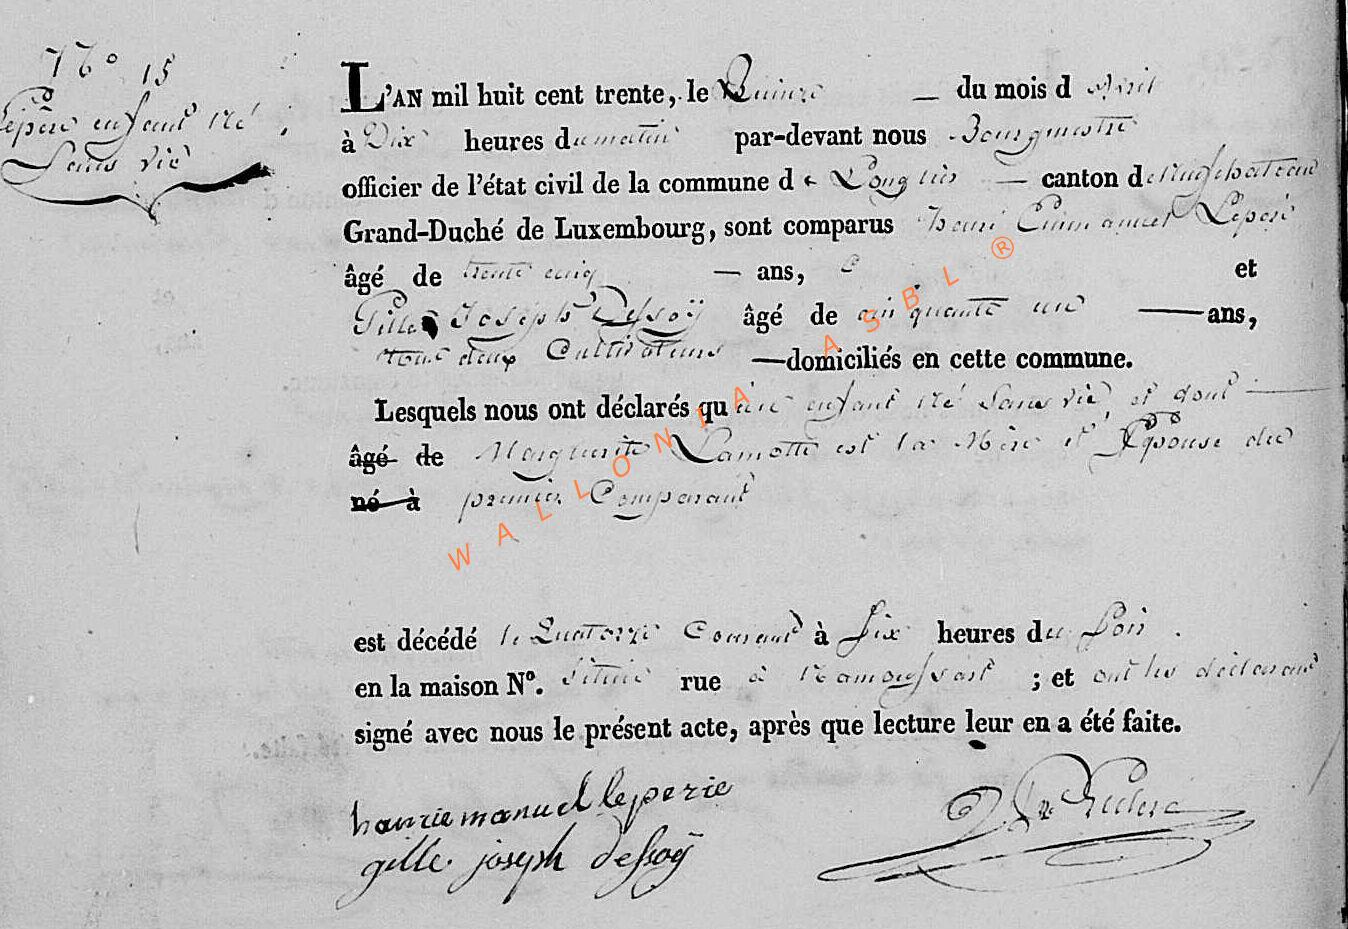 N° 15
Lepère enfant né
Sans vie
L'AN mil huit cent trente, le Quinze — du mois d avril
à Dix heures du matin par-devant nous Bourgmestre
officier de l'état civil de la commune de Longlier — canton de Neufchateau
Grand-Duché de Luxembourg, sont comparus henri Emmanuel Leperé
âgé de trente cinq — ans, et
Gille Joseph Dessoÿ âgé de cinquante un — ans,
tous deux Cultivateurs — domiciliés en cette commune.
Lesquels nous ont déclarés qu'un enfant né Sans vie, et dont —
âgé de Marguerite Lamotte est la Mère et Epouse du
né à premier Comparant
est décédé le Quatorze Courant à Six heures du Soir.
en la maison N°. située rue à Namoussart ; et ont les déclarants
signé avec nous le présent acte, après que lecture leur en a été faite.
hanrie manuel leperie
gille joseph dessoÿ
WALLONIA ASBL ®